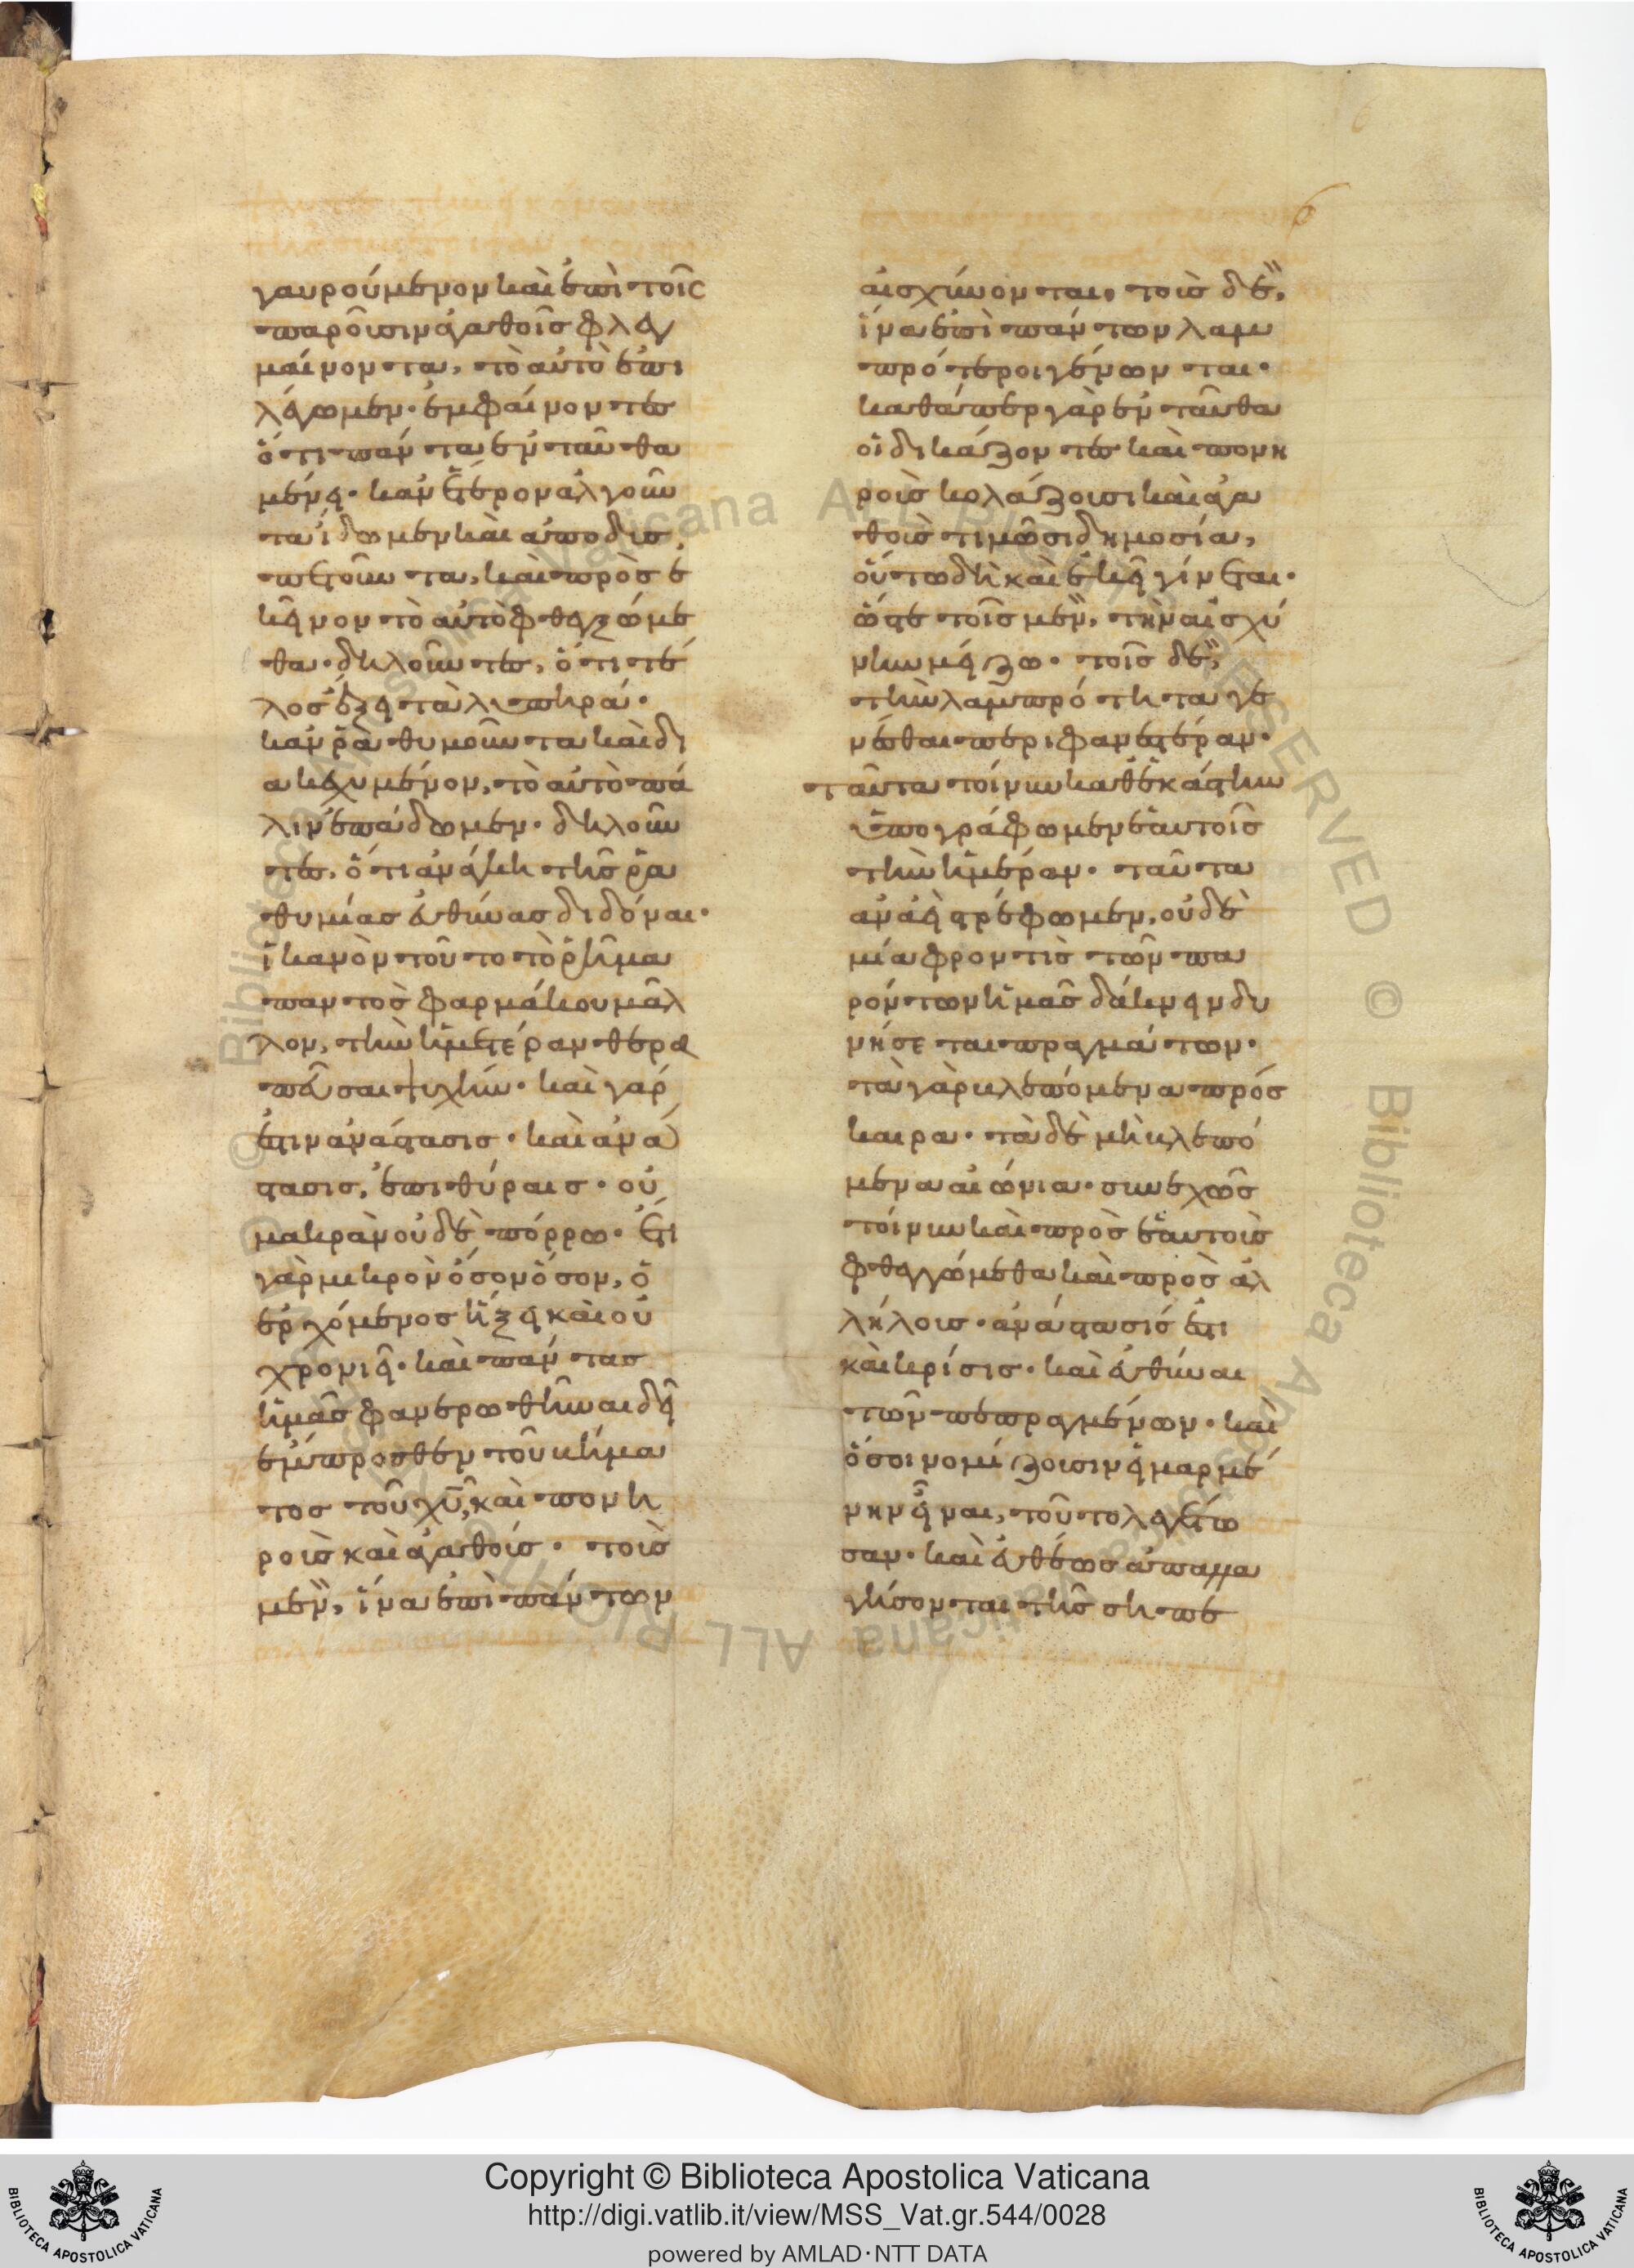 6
γαυρούμενον καὶ ἐπὶ τοῖς
παροῦσιν ἀγαθοῖς φλεγ
μαίνοντα, τὸ αὐτὸ ἐπι
λέγωμεν· ἐμφαίνοντες
ὅτι πάντα ἐνταῦθα
μένει· κἂν ἕτερον ἀλγοῦν
τα ἴδωμεν καὶ ἀποδυσ
πετοῦντα, καὶ πρὸς ἐ
κεῖνον τὸ αὐτὸ φθεγξώμε
θα· δηλοῦντες, ὅτι τέ
λος ἕξει τὰ λυπηρά·
κἂν ῥαθυμοῦντα καὶ δι
ακεχυμένον, τὸ αὐτὸ πά
λιν ἐπάδωμεν· δηλοῦν
τες, ὅτι ἀνάγκη τῆς ῥα
θυμίας εὐθύνας διδόναι·
ἱκανὸν τοῦτο τὸ ῥῆμα
παντὸς φαρμάκου μᾶλ
λον, τὴν ἡμετέραν θερα
πεῦσαι ψυχήν· καὶ γάρ
ἐστιν ἀνάστασις· καὶ ἀνά
στασις, ἐπὶ θύραις· οὐ
μακρὰν οὐδὲ πόρρω· ἔτι
γὰρ μικρὸν ὅσον ὅσον, ὁ
ἐρχόμενος ἥξει καὶ οὐ
χρονιεῖ· καὶ πάντας
ἡμᾶς φανερωθῆναι δεῖ
ἔμπροσθεν τοῦ βήμα
τος τοῦ χυ, καὶ πονη
ροὺς καὶ ἀγαθούς· τοὺς
μὲν, ἵνα ἐπὶ πάντων
αἰσχύνονται, τοὺς δὲ,
ἵνα ἐπὶ πάντων λαμ
πρότεροι γένωνται·
καθάπερ γὰρ ἐνταῦθα
οἱ δικάζοντες καὶ πονη
ροὺς κολάζουσι καὶ ἀγα
θοὺς τιμῶσι δημοσία,
οὕτω δὴ καὶ ἐκεῖ γίνεται·
ὥστε τοῖς μὲν, τὴν αἰσχύ
νην μείζω· τοῖς δὲ,
τὴν λαμπρότητα γε
νέσθαι περιφανεστέραν·
ταῦτα τοίνυν καθ' ἑκάστην
ὑπογράφωμεν ἑαυτοῖς
τὴν ἡμέραν· ταῦτα
ἂν ἀεὶ στρέφωμεν, οὐδὲ
μία φροντὶς τῶν πα
ρόντων ἡμᾶς δάκνειν δυ
νήσεται πραγμάτων·
τὰ γὰρ βλεπόμενα πρόσ
καιρα· τὰ δὲ μὴ βλεπό
μενα αἰώνια· συνεχῶς
τοίνυν καὶ πρὸς ἑαυτοὺς
φθεγγώμεθα καὶ πρὸς ἀλ
λήλους· ἀνάστασίς ἐστι
καὶ κρίσις· καὶ εὐθύναι
τῶν πεπραγμένων· καὶ
ὅσοι νομίζουσιν εἱμαρμέ
νην εἶναι, τοῦτο λεγέτω
σαν· καὶ εὐθέως ἀπαλλα
γήσονται τῆς σηπε
Copyright © Biblioteca Apostolica Vaticana
http://digi.vatlib.it/view/MSS_Vat.gr.544/0028
powered by AMLAD·NTT DATA
BIBLIOTECA APOSTOLICA VATICANA
BIBLIOTECA APOSTOLICA VATICANA